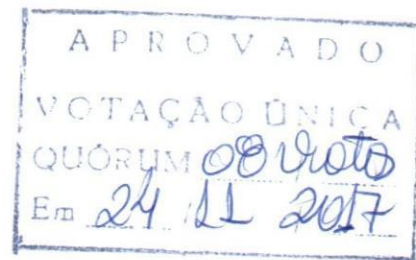 APROVADO
VOTAÇÃO ÚNICA
QUÓRUM 08 votos
Em 24 11 2017